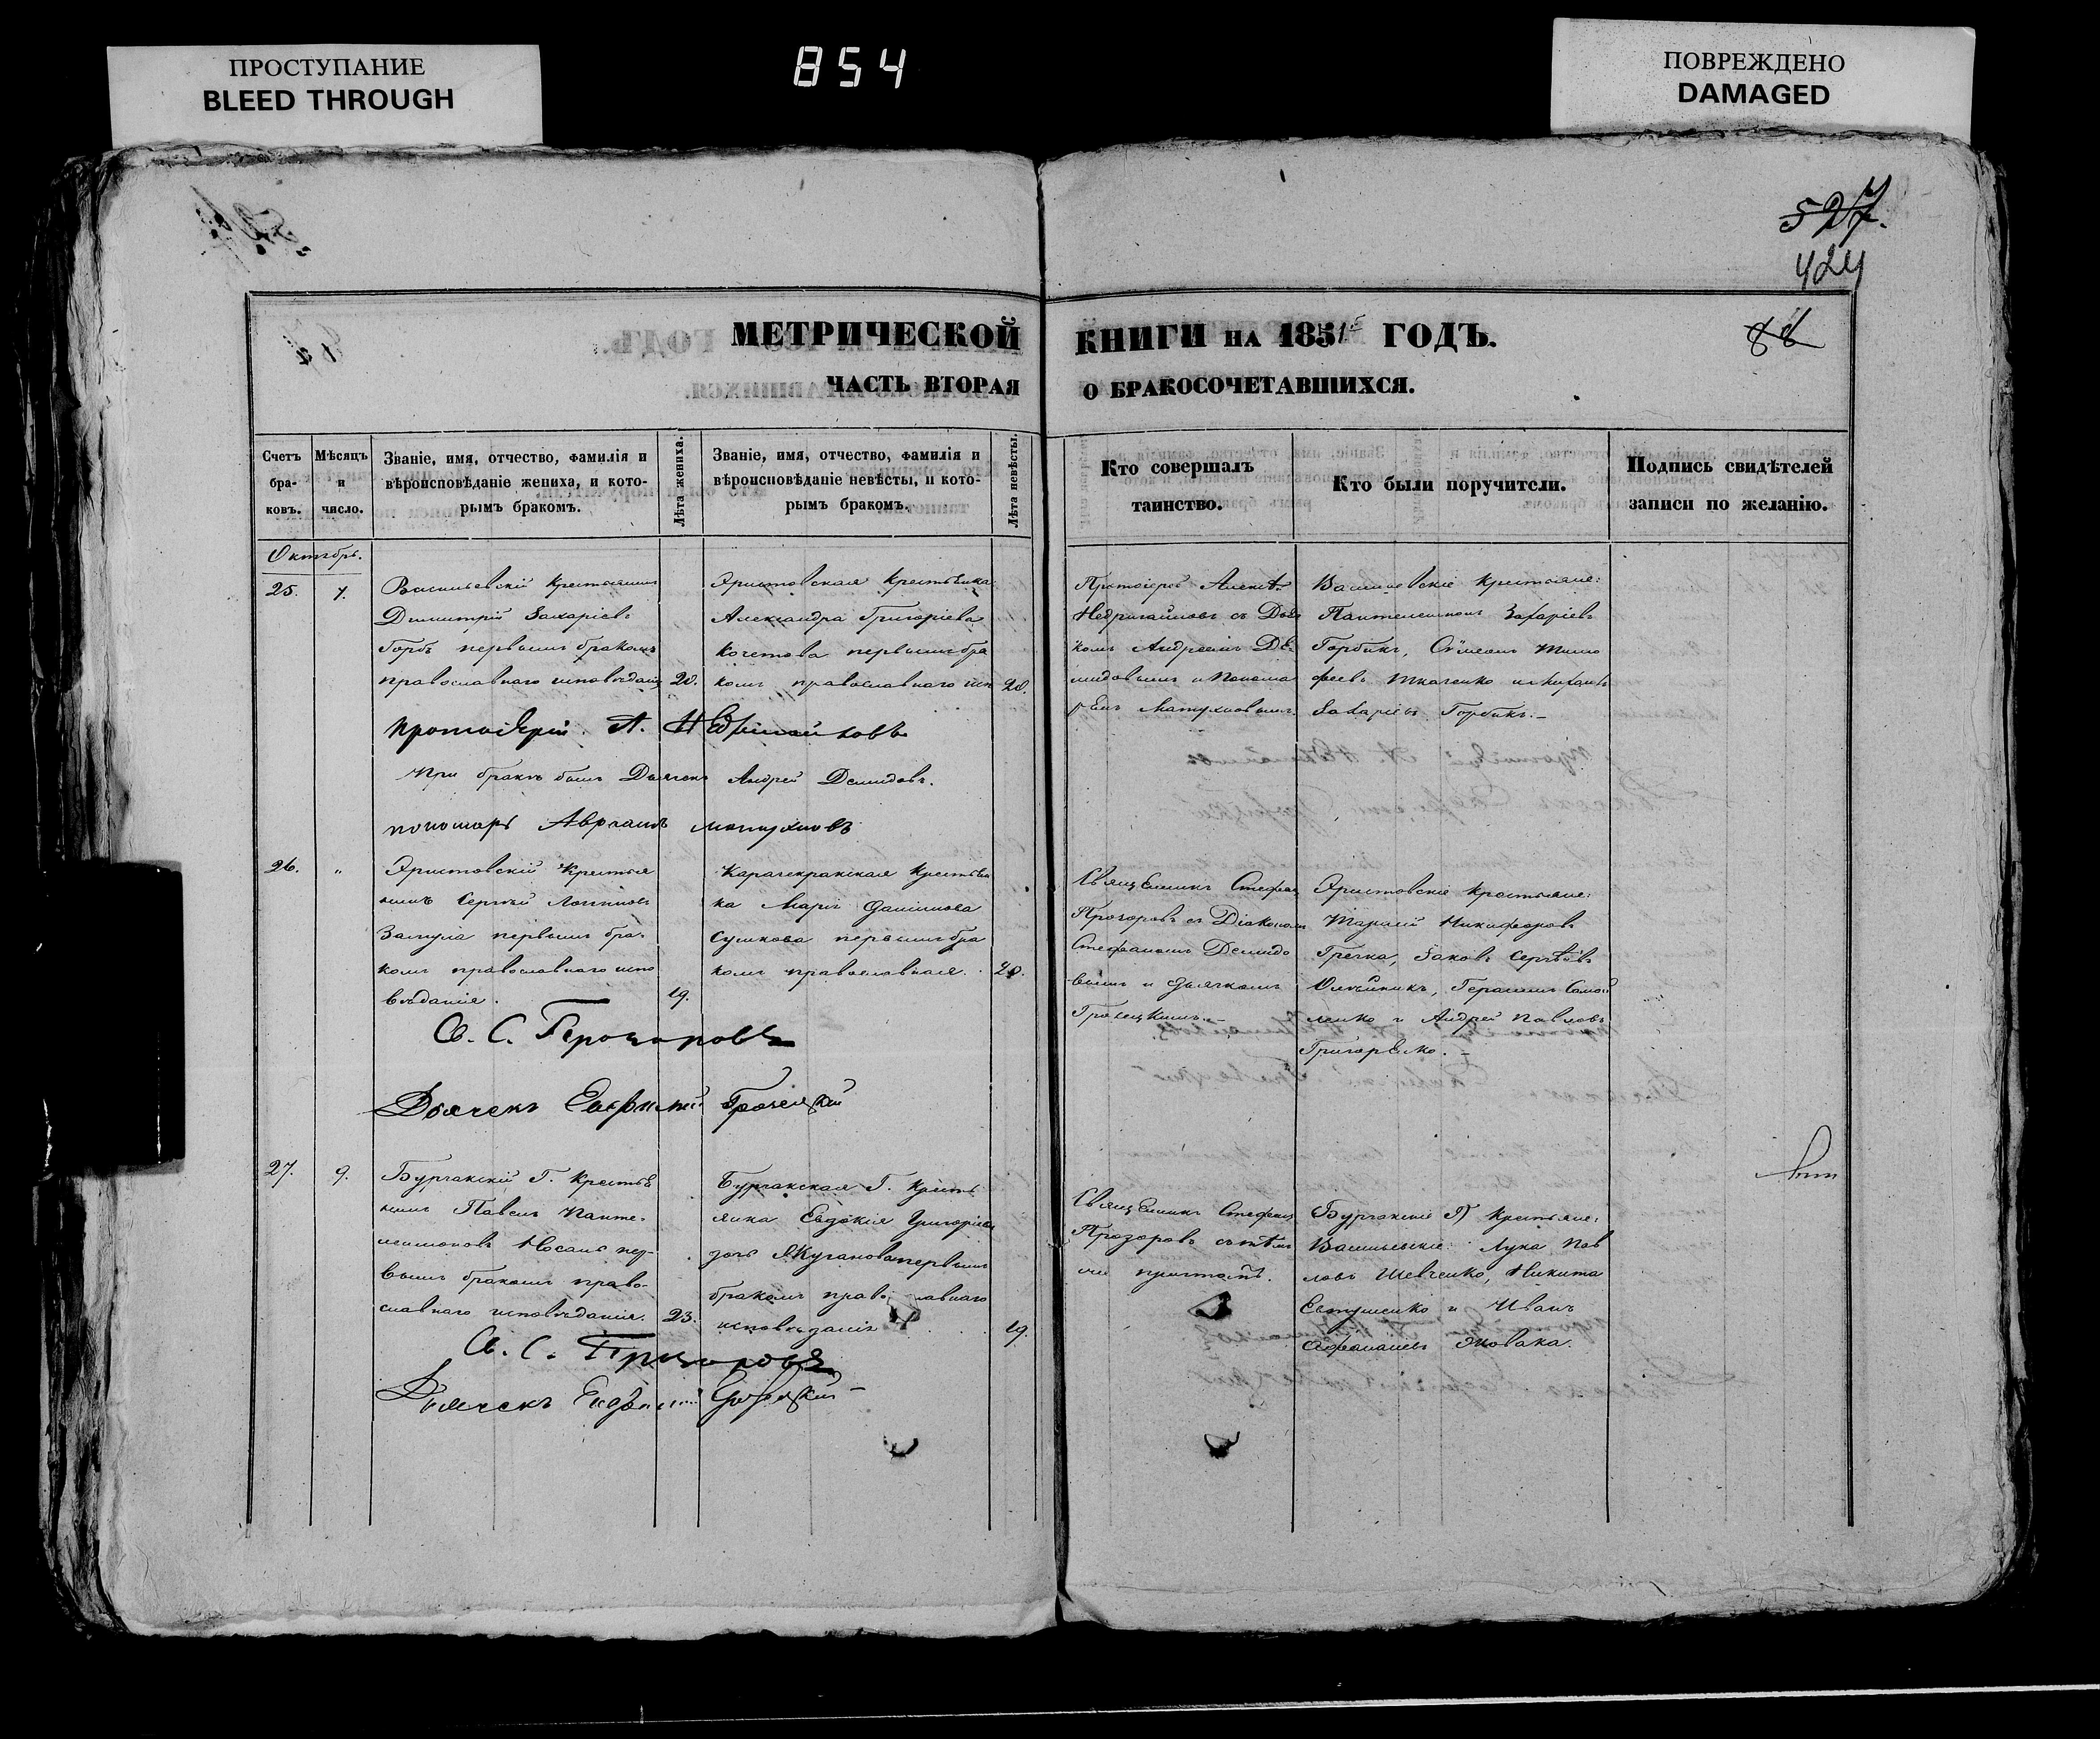 ПРОСТУПАНИЕ
BLEED THROUGH
854
ПОВРЕЖДЕНО
DAMAGED
527.
424
МЕТРИЧЕСКОЙ КНИГИ НА 1851 ГОДЪ.
ЧАСТЬ ВТОРАЯ О БРАКОСОЧЕТАВШИХСЯ.
Счетъ
бра-
ковъ.
Мѣсяцъ
и
число.
Званіе, имя, отчество, фамилія и
вѣроисповѣданіе жениха, и кото-
рымъ бракомъ.
Лѣта жениха.
Званіе, имя, отчество, фамилія и
вѣроисповѣданіе невѣсты, и кото-
рымъ бракомъ.
Лѣта невѣсты.
Кто совершалъ
таинство.
Кто были поручители.
Подпись свидѣтелей
записи по желанію.
Октябрь.
25.
Васильевскій крестьянинъ
Димитрій Захаріевъ
Горбъ первымъ бракомъ
православнаго исповѣданія
20.
Эристовская крестьянка
Александра Григоріева
Кочетова первымъ бра
комъ православнаго исп
20.
Протоіерей Алекс
Недригайловъ съ Дья
комъ Андреемъ Де
мидовымъ и Понома
ремъ Матухновымъ.
Васильевскіе крестьяне:
Пантелеимонъ Захаріевъ
Горбикъ, Сѵмеонъ Тимо
феевъ Ткаченко и
Захаріевъ Горбикъ.
протоіерей А. Недригайловъ
При бракѣ былъ Дьячекъ Андрей Демидовъ.
пономарь Авраамъ Матухновъ
26.
"
Эристовскій крестья
нинъ Сергѣй Логиновъ
Замула первымъ бра-
комъ православнаго испо
вѣданія.
19.
Карачекракская крестьян
ка Марія Данилова
Сушкова первымъ бра
комъ православная.
20.
Священникъ Стефан
Прозоровъ съ Діакономъ
Стефаномъ Демидо
вымъ и дьячкомъ
Эристовскіе крестьяне:
Тарасій Никифоровъ
Гречка, Іаковъ Сергѣевъ
Олейникъ, Герасимъ Самой
ленко и Андрей Павловъ
Григоренко.
Св. С. Прозоровъ
Дьячекъ Евфимій
27.
9.
Бурчакскій Г. крестья
нинъ Павелъ Панте-
леимоновъ Носань пер-
вымъ бракомъ право-
славнаго исповѣданія.
23.
Бурчакская Г. кресть
янка Евдокія Григоріева
дочь Якуганова первымъ
бракомъ прав лавнаго
исповѣданія
19.
Священникъ Стефан
Прозоровъ съ тѣмъ
же причтомъ.
Бурчакскіе крестьяне:
Васильевскіе: Лука Пав
ловъ Шевченко, Никита
Евтушенко и Иванъ
Афанасіевъ Новака.
Св. С. Прозоровъ
Дьячекъ Евфимій